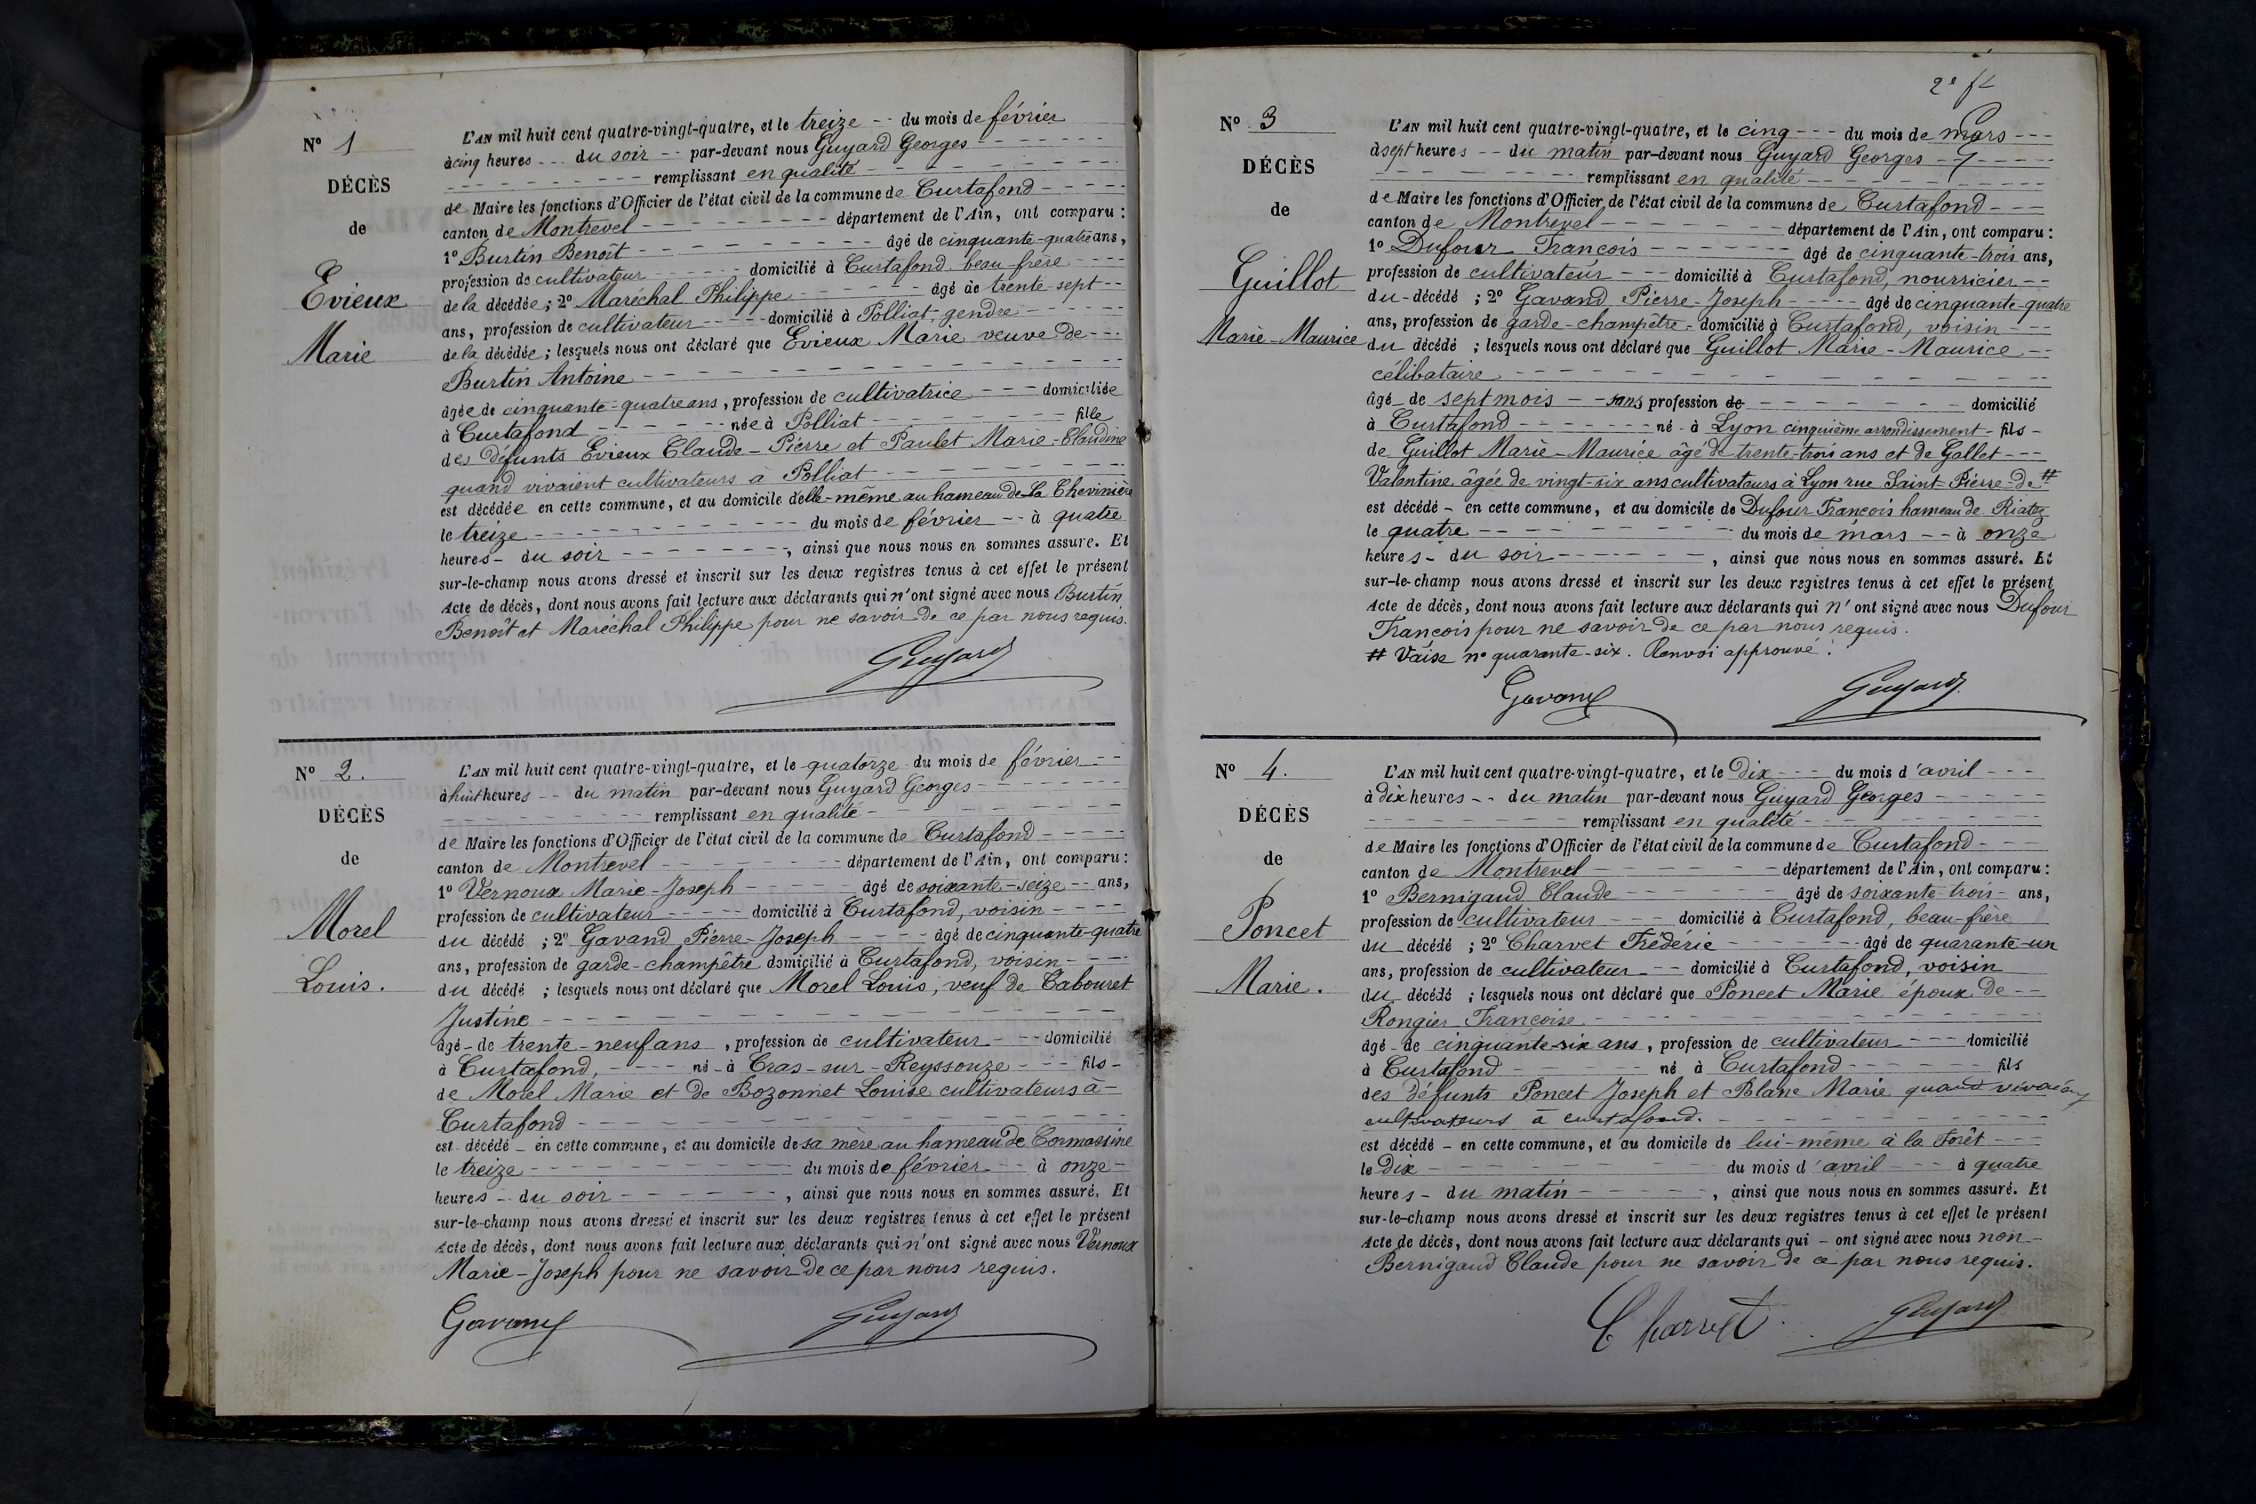 Nº 1
DÉCÈS
de
Evieux
Marie
L'AN mil huit cent quatre-vingt-quatre, et le treize -- du mois de février
à cinq heures --- du soir -- par-devant nous Guyard Georges
remplissant en qualité
de Maire les fonctions d'Officier de l'état civil de la commune de Curtafond
canton de Montrevel département de l'Ain, ont comparu :
1º Burtin Benoît âgé de cinquante-quatre ans,
profession de cultivateur domicilié à Curtafond beau-frère
de la décédée ; 2º Maréchal Philippe âgé de trente-sept
ans, profession de cultivateur domicilié à Polliat, gendre
de la décédée ; lesquels nous ont déclaré que Evieux Marie veuve de
Burtin Antoine
âgée de cinquante-quatre ans, profession de cultivatrice domiciliée
à Curtafond née à Polliat fille
des défunts Evieux Claude-Pierre et Paulet Marie-Claudine
quand vivaient cultivateurs à Polliat
est décédée en cette commune, et au domicile d'elle-même au hameau de La Chevinière
le treize du mois de février -- à quatre
heures - du soir , ainsi que nous nous en sommes assuré. Et
sur-le-champ nous avons dressé et inscrit sur les deux registres tenus à cet effet le présent
Acte de décès, dont nous avons fait lecture aux déclarants qui n'ont signé avec nous Burtin
Benoît et Maréchal Philippe pour ne savoir de ce par nous requis.
Guyard
Nº 2.
DÉCÈS
de
Morel
Louis.
L'AN mil huit cent quatre-vingt-quatre, et le quatorze du mois de février
à huit heures -- du matin par-devant nous Guyard Georges
remplissant en qualité
de Maire les fonctions d'Officier de l'état civil de la commune de Curtafond
canton de Montrevel département de l'Ain, ont comparu :
1º Vernoux Marie-Joseph âgé de soixante-seize -- ans,
profession de cultivateur domicilié à Curtafond, voisin
du décédé ; 2º Gavand Pierre-Joseph âgé de cinquante-quatre
ans, profession de garde-champêtre domicilié à Curtafond, voisin
du décédé ; lesquels nous ont déclaré que Morel Louis, veuf de Cabouret
Justine
âgé - de trente-neuf ans, profession de cultivateur domicilié
à Curtafond, né - à Cras-sur-Reyssouze fils -
de Morel Marie et de Bozonnet Louise cultivateurs à -
Curtafond
est décédé - en cette commune, et au domicile de sa mère au hameau de Cormassine
le treize du mois de février à onze -
heures -- du soir , ainsi que nous nous en sommes assuré. Et
sur-le-champ nous avons dressé et inscrit sur les deux registres tenus à cet effet le présent
Acte de décès, dont nous avons fait lecture aux déclarants qui n'ont signé avec nous Vernoux
Marie-Joseph pour ne savoir de ce par nous requis.
Gavand Guyard
2e ft
Nº 3
DÉCÈS
de
Guillot
Marie-Maurice
L'AN mil huit cent quatre-vingt-quatre, et le cinq --- du mois de mars ---
à sept heures -- du matin par-devant nous Guyard Georges
remplissant en qualité
de Maire les fonctions d'Officier de l'état civil de la commune de Curtafond
canton de Montrevel département de l'Ain, ont comparu :
1º Dufour François âgé de cinquante-trois ans,
profession de cultivateur domicilié à Curtafond, nourricier
du - décédé ; 2º Gavand Pierre-Joseph âgé de cinquante-quatre
ans, profession de garde-champêtre - domicilié à Curtafond, voisin
du décédé ; lesquels nous ont déclaré que Guillot Marie-Maurice
célibataire
âgé de sept mois -- sans profession de domicilié
à Curtafond né - à Lyon cinquième arrondissement - fils -
de Guillot Marie-Maurice âgé de trente-trois ans et de Gallet
Valentine âgée de vingt-six ans cultivateurs à Lyon rue Saint-Pierre-de #
est décédé - en cette commune, et au domicile de Dufour François hameau de Riatez
le quatre du mois de mars -- à onze
heures - du soir , ainsi que nous nous en sommes assuré. Et
sur-le-champ nous avons dressé et inscrit sur les deux registres tenus à cet effet le présent
Acte de décès, dont nous avons fait lecture aux déclarants qui n'ont signé avec nous Dufour
François pour ne savoir de ce par nous requis.
# Vaise nº quarante-six. Renvoi approuvé :
Gavand Guyard
Nº 4.
DÉCÈS
de
Poncet
Marie.
L'AN mil huit cent quatre-vingt-quatre, et le Dix --- du mois d'avril ---
à dix heures -- du matin par-devant nous Guyard Georges
remplissant en qualité
de Maire les fonctions d'Officier de l'état civil de la commune de Curtafond
canton de Montrevel département de l'Ain, ont comparu :
1º Bernigaud Claude âgé de soixante-trois - ans,
profession de cultivateur domicilié à Curtafond, beau-frère
du décédé ; 2º Charvet Frédéric âgé de quarante-un
ans, profession de cultivateur domicilié à Curtafond, voisin
du décédé ; lesquels nous ont déclaré que Poncet Marie époux de
Rongier Françoise
âgé - de cinquante-six ans, profession de cultivateur domicilié
à Curtafond né à Curtafond fils
des défunts Poncet Joseph et Blanc Marie quand vivaient
cultivateurs à curtafond.
est décédé - en cette commune, et au domicile de lui-même à la Forêt
le Dix du mois d'avril à quatre
heures - du matin , ainsi que nous nous en sommes assuré. Et
sur-le-champ nous avons dressé et inscrit sur les deux registres tenus à cet effet le présent
Acte de décès, dont nous avons fait lecture aux déclarants qui - ont signé avec nous non -
Bernigaud Claude pour ne savoir de ce par nous requis.
Charvet Guyard